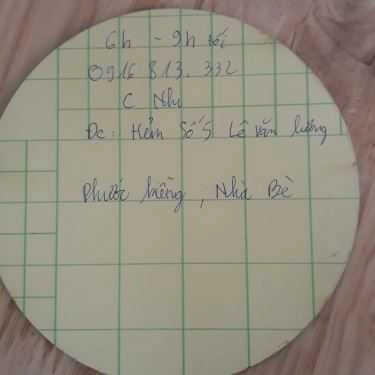 6h - 9h tối
0916.813.332
C Như
Đc: Hẻm Số 5 Lê Văn Lương
Phước kiểng, Nhà Bè